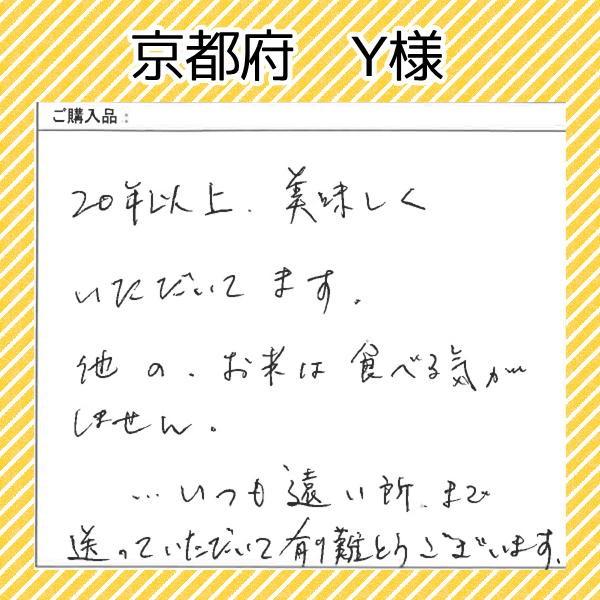 京都府　Y様
ご購入品：
20年以上、美味しく
いただいてます。
他の、お米は食べる気が
しません。
…いつも遠い所、まで
送っていただいて有り難とうございます。